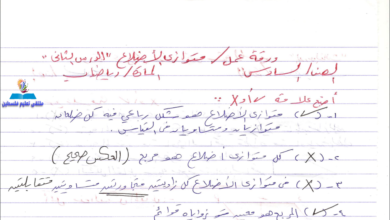 ورقة عمل / متوازي الأضلاع "الدرس الثاني"
الصف / السادس المادة / رياضيات
ملتقى تعليم فلسطين
أضع علامة √ أو X :
١- (√) متوازي الأضلاع هو شكل رباعي فيه كل ضلعان
متوازيان ومتساويان في القياس.
٢- (X) كل متوازي أضلاع هو مربع (العكس صحيح)
٣- (X) في متوازي الأضلاع كل زاويتين متساويتين متقابلتين
(√) المربع هو زواياه قوائم